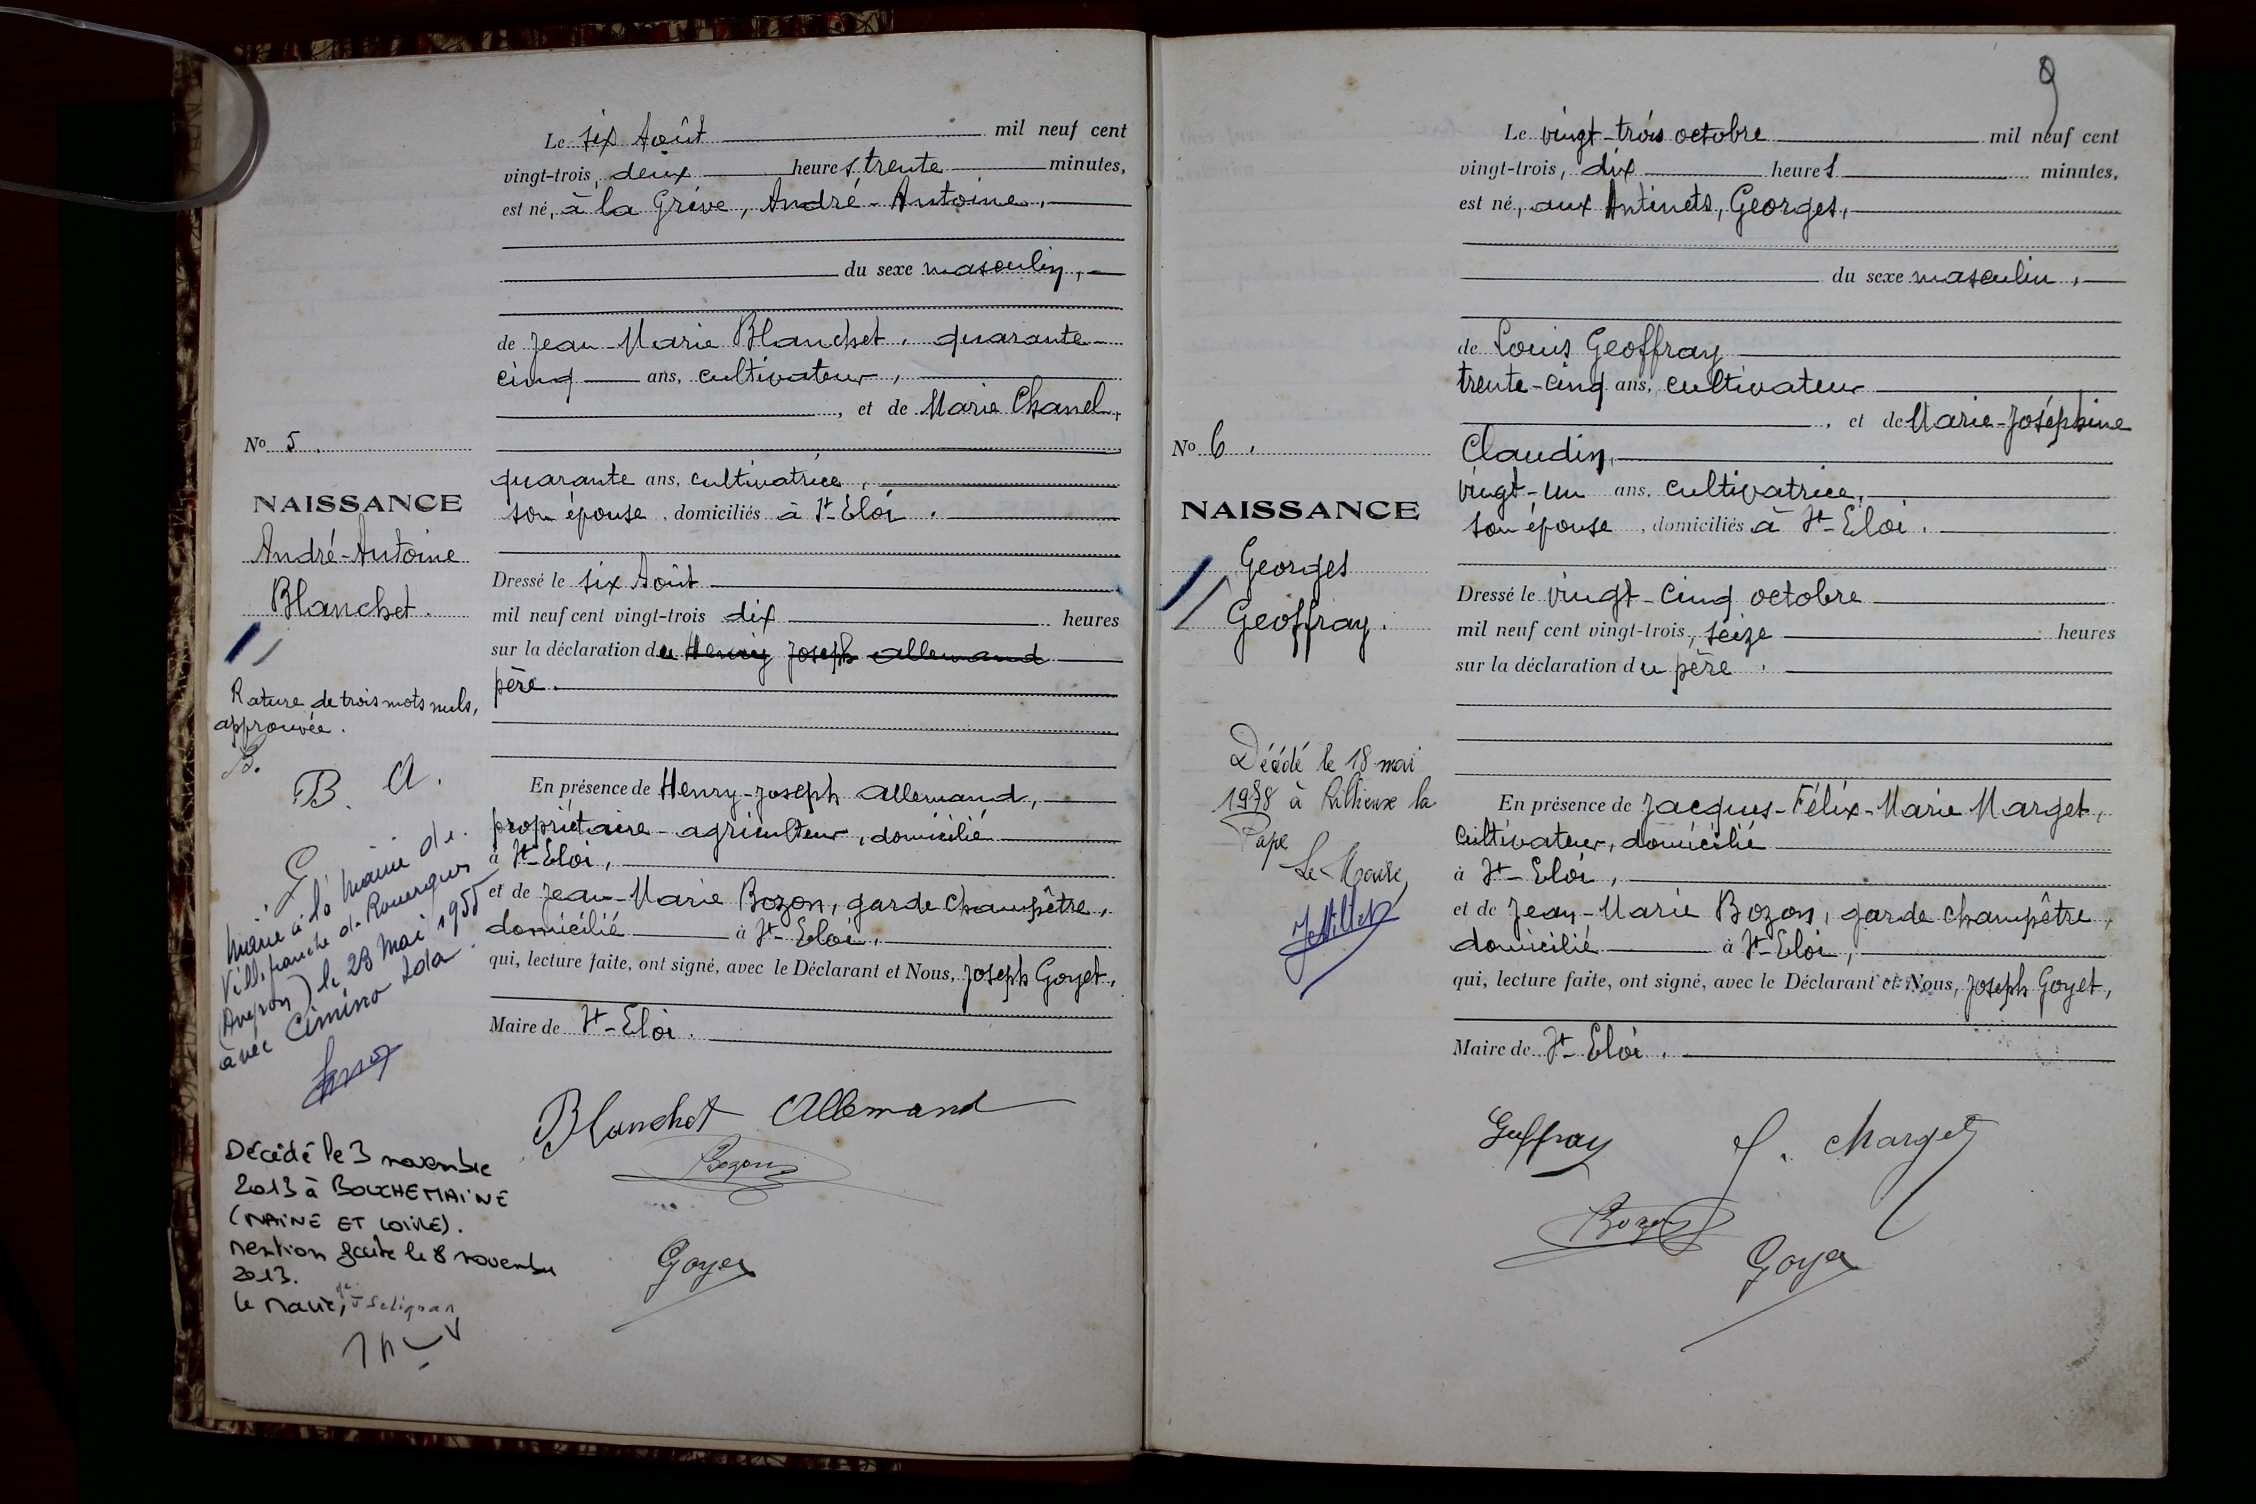 Le six Août mil neuf cent
vingt-trois, deux heures trente minutes,
est né, à la Grève, André-Antoine,
du sexe masculin,
de Jean-Marie Blanchet, quarante-
cinq ans, cultivateur,
, et de Marie Chanel,
No 5.
quarante ans, cultivatrice,
NAISSANCE
son épouse, domiciliés à St-Eloi.
André-Antoine
Blanchet.
Dressé le six Août
mil neuf cent vingt-trois dix heures
sur la déclaration du Henry Joseph Allemand
père.
Rature de trois mots nuls,
approuvée.
B.
B. A.
G
En présence de Henry-Joseph Allemand,
propriétaire-agriculteur, domicilié
à St-Eloi,
et de Jean-Marie Bozon, garde champêtre,
domicilié à St-Eloi,
qui, lecture faite, ont signé, avec le Déclarant et Nous, Joseph Goyet,
Maire de St-Eloi.
Marié à la mairie de
Villefranche de Rouergues
(Aveyron) le 23 mai 1955
avec Cimino Ida.
Blanchet Allemand
Bozon
Goyet
Décédé le 3 novembre
2013 à BOUCHEMAINE
(MAINE ET LOIRE).
mention faite le 8 novembre
2013.
Le Maire,
9
Le vingt-trois octobre mil neuf cent
vingt-trois, dix heures minutes,
est né, aux Antinets, Georges,
du sexe masculin,
de Louis Geoffray
trente-cinq ans, cultivateur
, et de Marie-Joséphine
No 6.
Claudin,
vingt-un ans, cultivatrice,
NAISSANCE
son épouse, domiciliés à St-Eloi.
Georges
Geoffray.
Dressé le vingt-cinq octobre
mil neuf cent vingt-trois, seize heures
sur la déclaration du père.
Décédé le 18 mai
1978 à Rillieux la
Pape
Le Maire,
En présence de Jacques-Félix-Marie Marget,
cultivateur, domicilié
à St-Eloi,
et de Jean-Marie Bozon, garde champêtre,
domicilié à St-Eloi,
qui, lecture faite, ont signé, avec le Déclarant et Nous, Joseph Goyet,
Maire de St-Eloi.
Geffray J. Marget
Bozon
Goyet